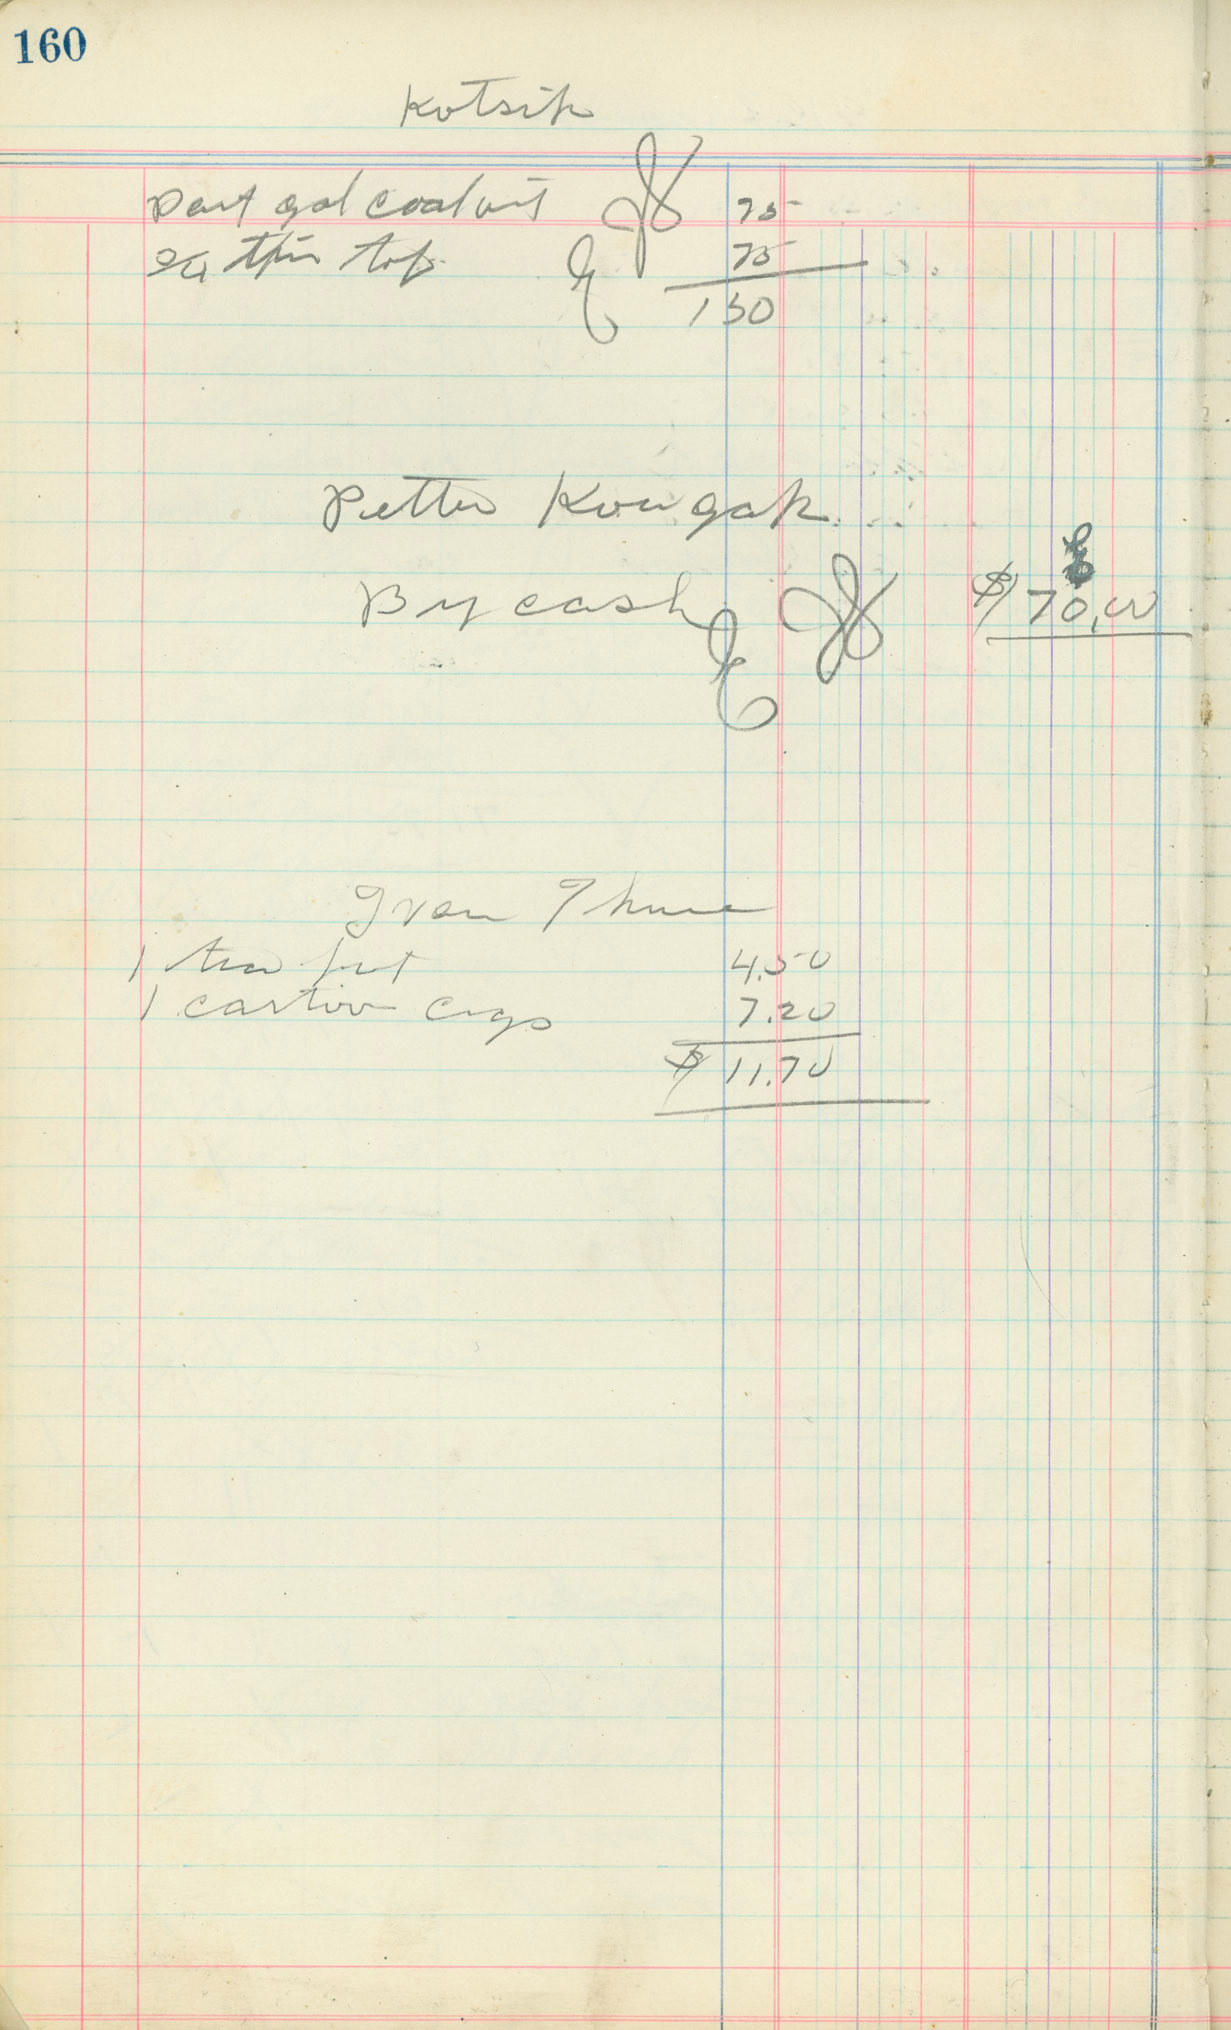 160
Kotsik
part gal coal
thin top
75
75
150
Petter Kougak
By cash $70.00
Ivan
1 tea pot 4.50
1 carton cigs 7.20
$ 11.70